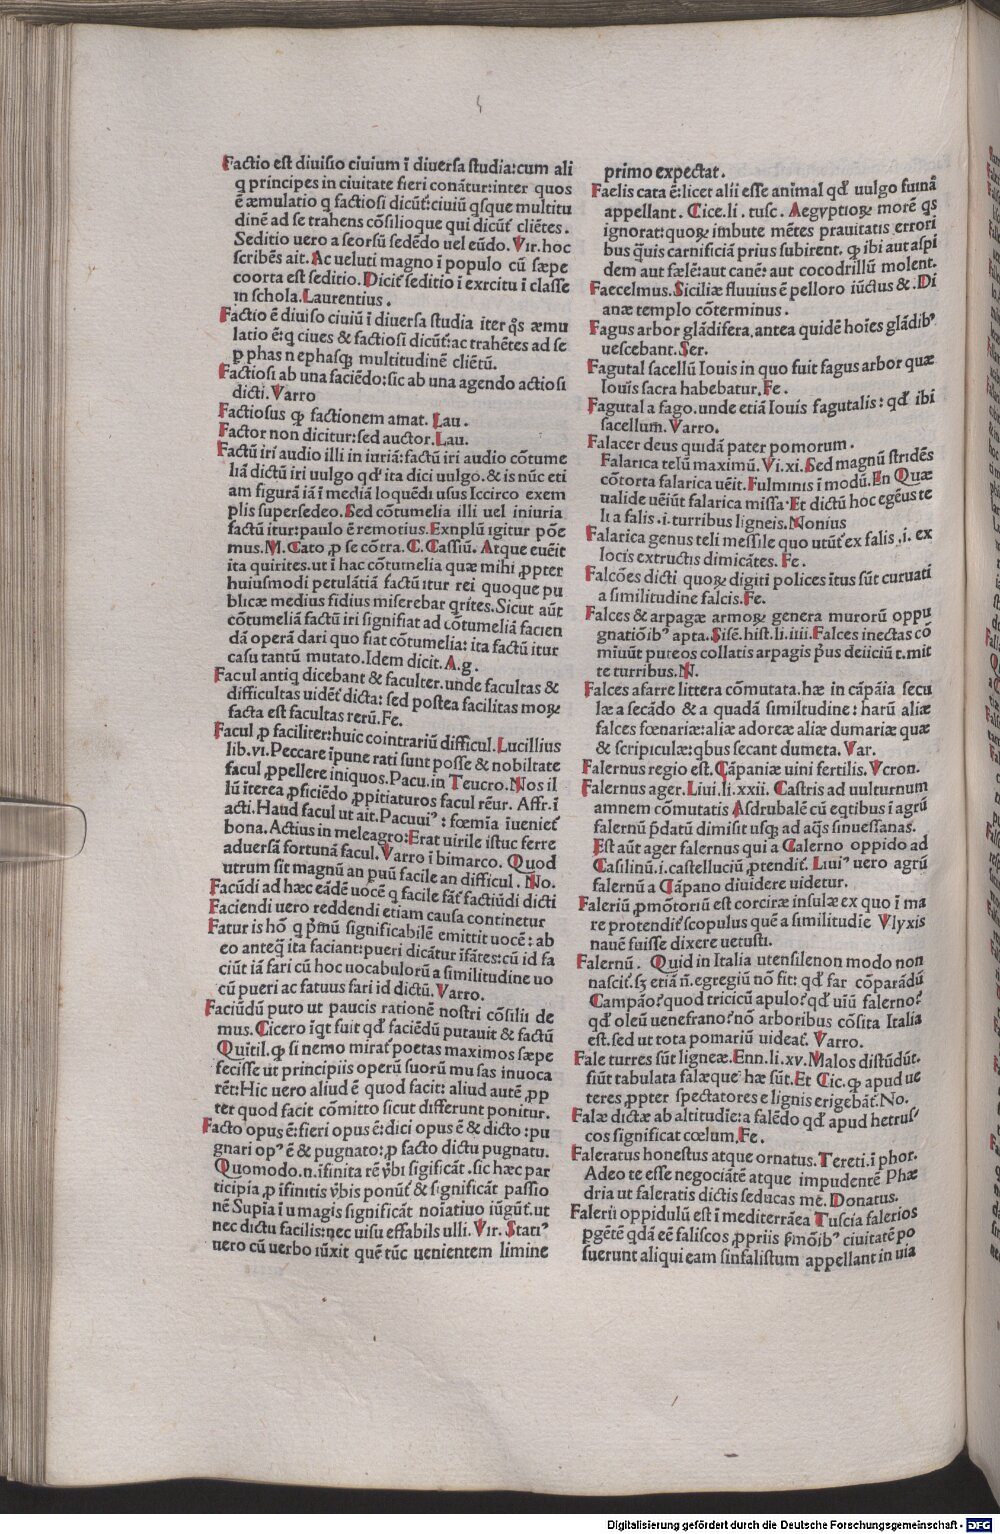 Factio est diuisio ciuium ĩ diuersa studia:cum ali
q principes in ciuitate fieri conãtur:inter quos
ẽ æmulatio q factiosi dicũt:ciuiũ qsque multitu
dinẽ ad se trahens cõsilioque qui dicũt cliẽtes.
Seditio uero a seorsũ sedẽdo uel eũdo. Vir.hoc
scribẽs ait. Ac ueluti magno ĩ populo cũ sæpe
coorta est seditio. Dicit seditio ĩ exrcitu ĩ classe
in schola.Laurentius.
Factio ẽ diuiso ciuiũ ĩ diuersa studia iter q̃s æmu
latio ẽ:q ciues & factiosi dicũt:ac trahẽtes ad se
p phas nephasqȝ multitudinẽ cliẽtũ.
Factiosi ab una faciẽdo:sic ab una agendo actiosi
dicti.Varro
Factiosus ꝙ factionem amat. Lau.
Factor non dicitur:sed auctor.Lau.
Factũ iri audio illi in iuriã:factũ iri audio cõtume
liã dictũ iri uulgo qď ita dici uulgo.& is nũc eti
am figurã iã ĩ mediã loquẽdi usus Iccirco exem
plis supersedeo.Sed cõtumelia illi uel iniuria
factũ itur:paulo ẽ remotius.Exnplũ igitur põe
mus.M.Cato ꝓ se cõtra.C.Cassiũ. Atque euẽit
ita quirites.ut ĩ hac cõtumelia quæ mihi ꝓpter
huiusmodi petulãtiã factũ itur rei quoque pu
blicæ medius fidius miserebar qrites.Sicut aũt
cõtumeliã factũ iri signifiat ad cõtumeliã facien
dã operã dari quo fiat cõtumelia: ita factũ itur
casu tantũ mutato.Idem dicit.A.g.
Facul antiq dicebant & faculter.unde facultas &
difficultas uidẽt dicta: sed postea facilitas moꝝ
facta est facultas rerũ.Fe.
Facul ꝓ faciliter:huic cointrariũ difficul.Lucillius
lib.vi.Peccare ĩpune rati sunt posse & nobiltate
facul ꝓpellere iniquos.Pacu.in Teucro.Nos il
lũ ĩterea ꝓficiẽdo ꝓpitiaturos facul rẽur. Affr.ĩ
acti.Haud facul ut ait.Pacuui⁹: fœmĩa ĩueniet
bona.Actius in meleagro:Erat uirile istuc ferre
aduersã fortunã facul.Varro ĩ bimarco. Quod
utrum sit magnũ an puũ facile an difficul. No.
Facũdi ad hæc eãdẽ uocẽ q facile fãt factiũdi dicti
Faciendi uero reddendi etiam causa continetur
Fatur is hõ q pmũ significabilẽ emittit uocẽ: ab
eo anteq̃ ita faciant:pueri dicãtur ĩfãtes:cũ id fa
ciũt iã fari cũ hoc uocabulorũ a similitudine uo
cũ pueri ac fatuus fari id dictũ.Varro.
Faciũdũ puto ut paucis rationẽ nostri cõsilii de
mus.Cicero ĩqt fuit qď faciẽdũ putauit & factũ
Quitil.ꝙ si nemo mirat poetas maximos sæpe
fecisse ut principiis operũ suorũ musas inuoca
rẽt:Hic uero aliud ẽ quod facit: aliud autẽ ꝓp
ter quod facit cõmitto sicut differunt ponitur.
Facto opus ẽ:fieri opus ẽ:dici opus ẽ & dicto:pu
gnari op⁹ ẽ & pugnato:ꝓ facto dictu pugnatu.
Quomodo.n.ĩfinita rẽ v̾bi sigificãt.sic hæc par
ticipia ꝓ ĩfinitis v̾bis ponũt & significãt passio
nẽ Supia ĩ u magis significãt noĩatiuo iũgũt.ut
nec dictu facilis:nec uisu effabils ulli.Vir. Stati⁹
uero cũ uerbo iũxit quẽ tũc uenientem limine
primo expectat.
Faelis cata ẽ:licet alii esse animal qď uulgo fuinã
appellant. Cice.li.tusc. Aegyptioꝝ morẽ qs
ignorat:quoꝝ imbute mẽtes prauitatis errori
bus q̃uis carnificiã prius subirent. ꝙ ibi aut aspi
dem aut fælẽ:aut canẽ: aut cocodrillũ molent.
Faecelmus.Siciliæ fluuius ẽ pelloro iũctus &.Di
anæ templo cõterminus.
Fagus arbor glãdifera.antea quidẽ hoĩes glãdib⁹
uescebant.Ser.
Fagutal sacellũ Iouis in quo fuit fagus arbor quæ
Iouis sacra habebatur.Fe.
Fagutal a fago.unde etiã Iouis fagutalis: qď ibi
sacellum.Varro.
Falacer deus quidã pater pomorum.
Falarica telũ maximũ. Vi.xi.Sed magnũ stridẽs
cõtorta falarica uẽit.Fulminis ĩ modũ.En Quæ
ualide uẽiũt falarica missa·Et dictũ hoc egẽus te
li a falis.i.turribus ligneis.Nonius
Falarica genus teli messile quo utũt ex falis.i. ex
locis extructis dimicãtes. Fe.
Falcões dicti quoꝝ digiti polices ĩtus sũt curuati
a similitudine falcis.Fe.
Falces & arpagæ armoꝝ genera murorũ oppu
gnatiõib⁹ apta.Sisẽ.hist.li.iiii.Falces inectas cõ
miuũt puteos collatis arpagis p̃us deiiciũt.mit
te turribus.N.
Falces afarre littera cõmutata.hæ in cãpãia secu
læ a secãdo & a quadã similtudine: harũ aliæ
falces fœnariæ:aliæ adoreæ aliæ dumariæ quæ
& scripiculæ:qbus secant dumeta. Var.
Falernus regio est.Cãpaniæ uini fertilis.Vcron.
Falernus ager. Liui.li.xxii. Castris ad uulturnum
amnem cõmutatis Asdrubalẽ cũ eqtibus ĩ agrũ
falernũ p̃datũ dimisit usqȝ ad aq̃s sinuessanas.
Est aũt ager falernus qui a Calerno oppido ad
Casilinũ.i.castelluciũ ꝓtendit. Liui⁹ uero agrũ
falernũ a Cãpano diuidere uidetur.
Faleriũ ꝓmõtoriũ est corciræ insulæ ex quo ĩ ma
re protendit scopulus quẽ a similitudie Vlyxis
nauẽ fuisse dixere uetusti.
Falernũ. Quid in Italia utensilenon modo non
nascit.sȝ etiã ñ.egregiũ nõ fit: qď far cõparãdũ
Campão?quod tricicũ apulo?qď uĩũ falerno?
qď oleũ uenefrano?nõ arboribus cõsita Italia
est.sed ut tota pomariũ uideat. Varro.
Fale turres sũt ligneæ.Enn.li.xv.Malos distũdũt.
fiũt tabulata falæque hæ sũt.Et Cic.ꝙ apud ue
teres ꝓpter spectatores e lignis erigebãt.No.
Falæ dictæ ab altitudie:a falẽdo qď apud hetrus
cos significat cœlum.Fe.
Faleratus honestus atque ornatus.Tereti.ĩ phor.
Adeo te esse negociãtẽ atque impudentẽ Phæ
dria ut faleratis dictis seducas me. Donatus.
Falerii oppidulũ est ĩ mediterrãea Tuscia falerios
pgẽtẽ qdã eẽ faliscos ꝓpriis p̃mõib⁹ ciuitatẽ po
suerunt aliqui eam sinfalistum appellant in uia
Digitalisierung gefördert durch die Deutsche Forschungsgemeinschaft - DFG